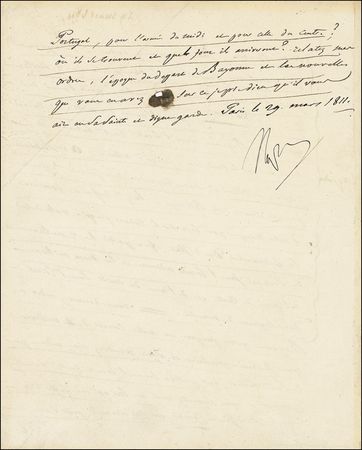 Portugal, pour l'armée du midi et pour celle du Centre?
où ils se trouvent et quels jours ils arriveront?
ordre, l'époque du départ de Bayonne et les nouvelles
que vous en avez sur ce je prie dieu qu'il vous
ait en sa Sainte et digne garde. Paris le 29. mars 1811.
Nap